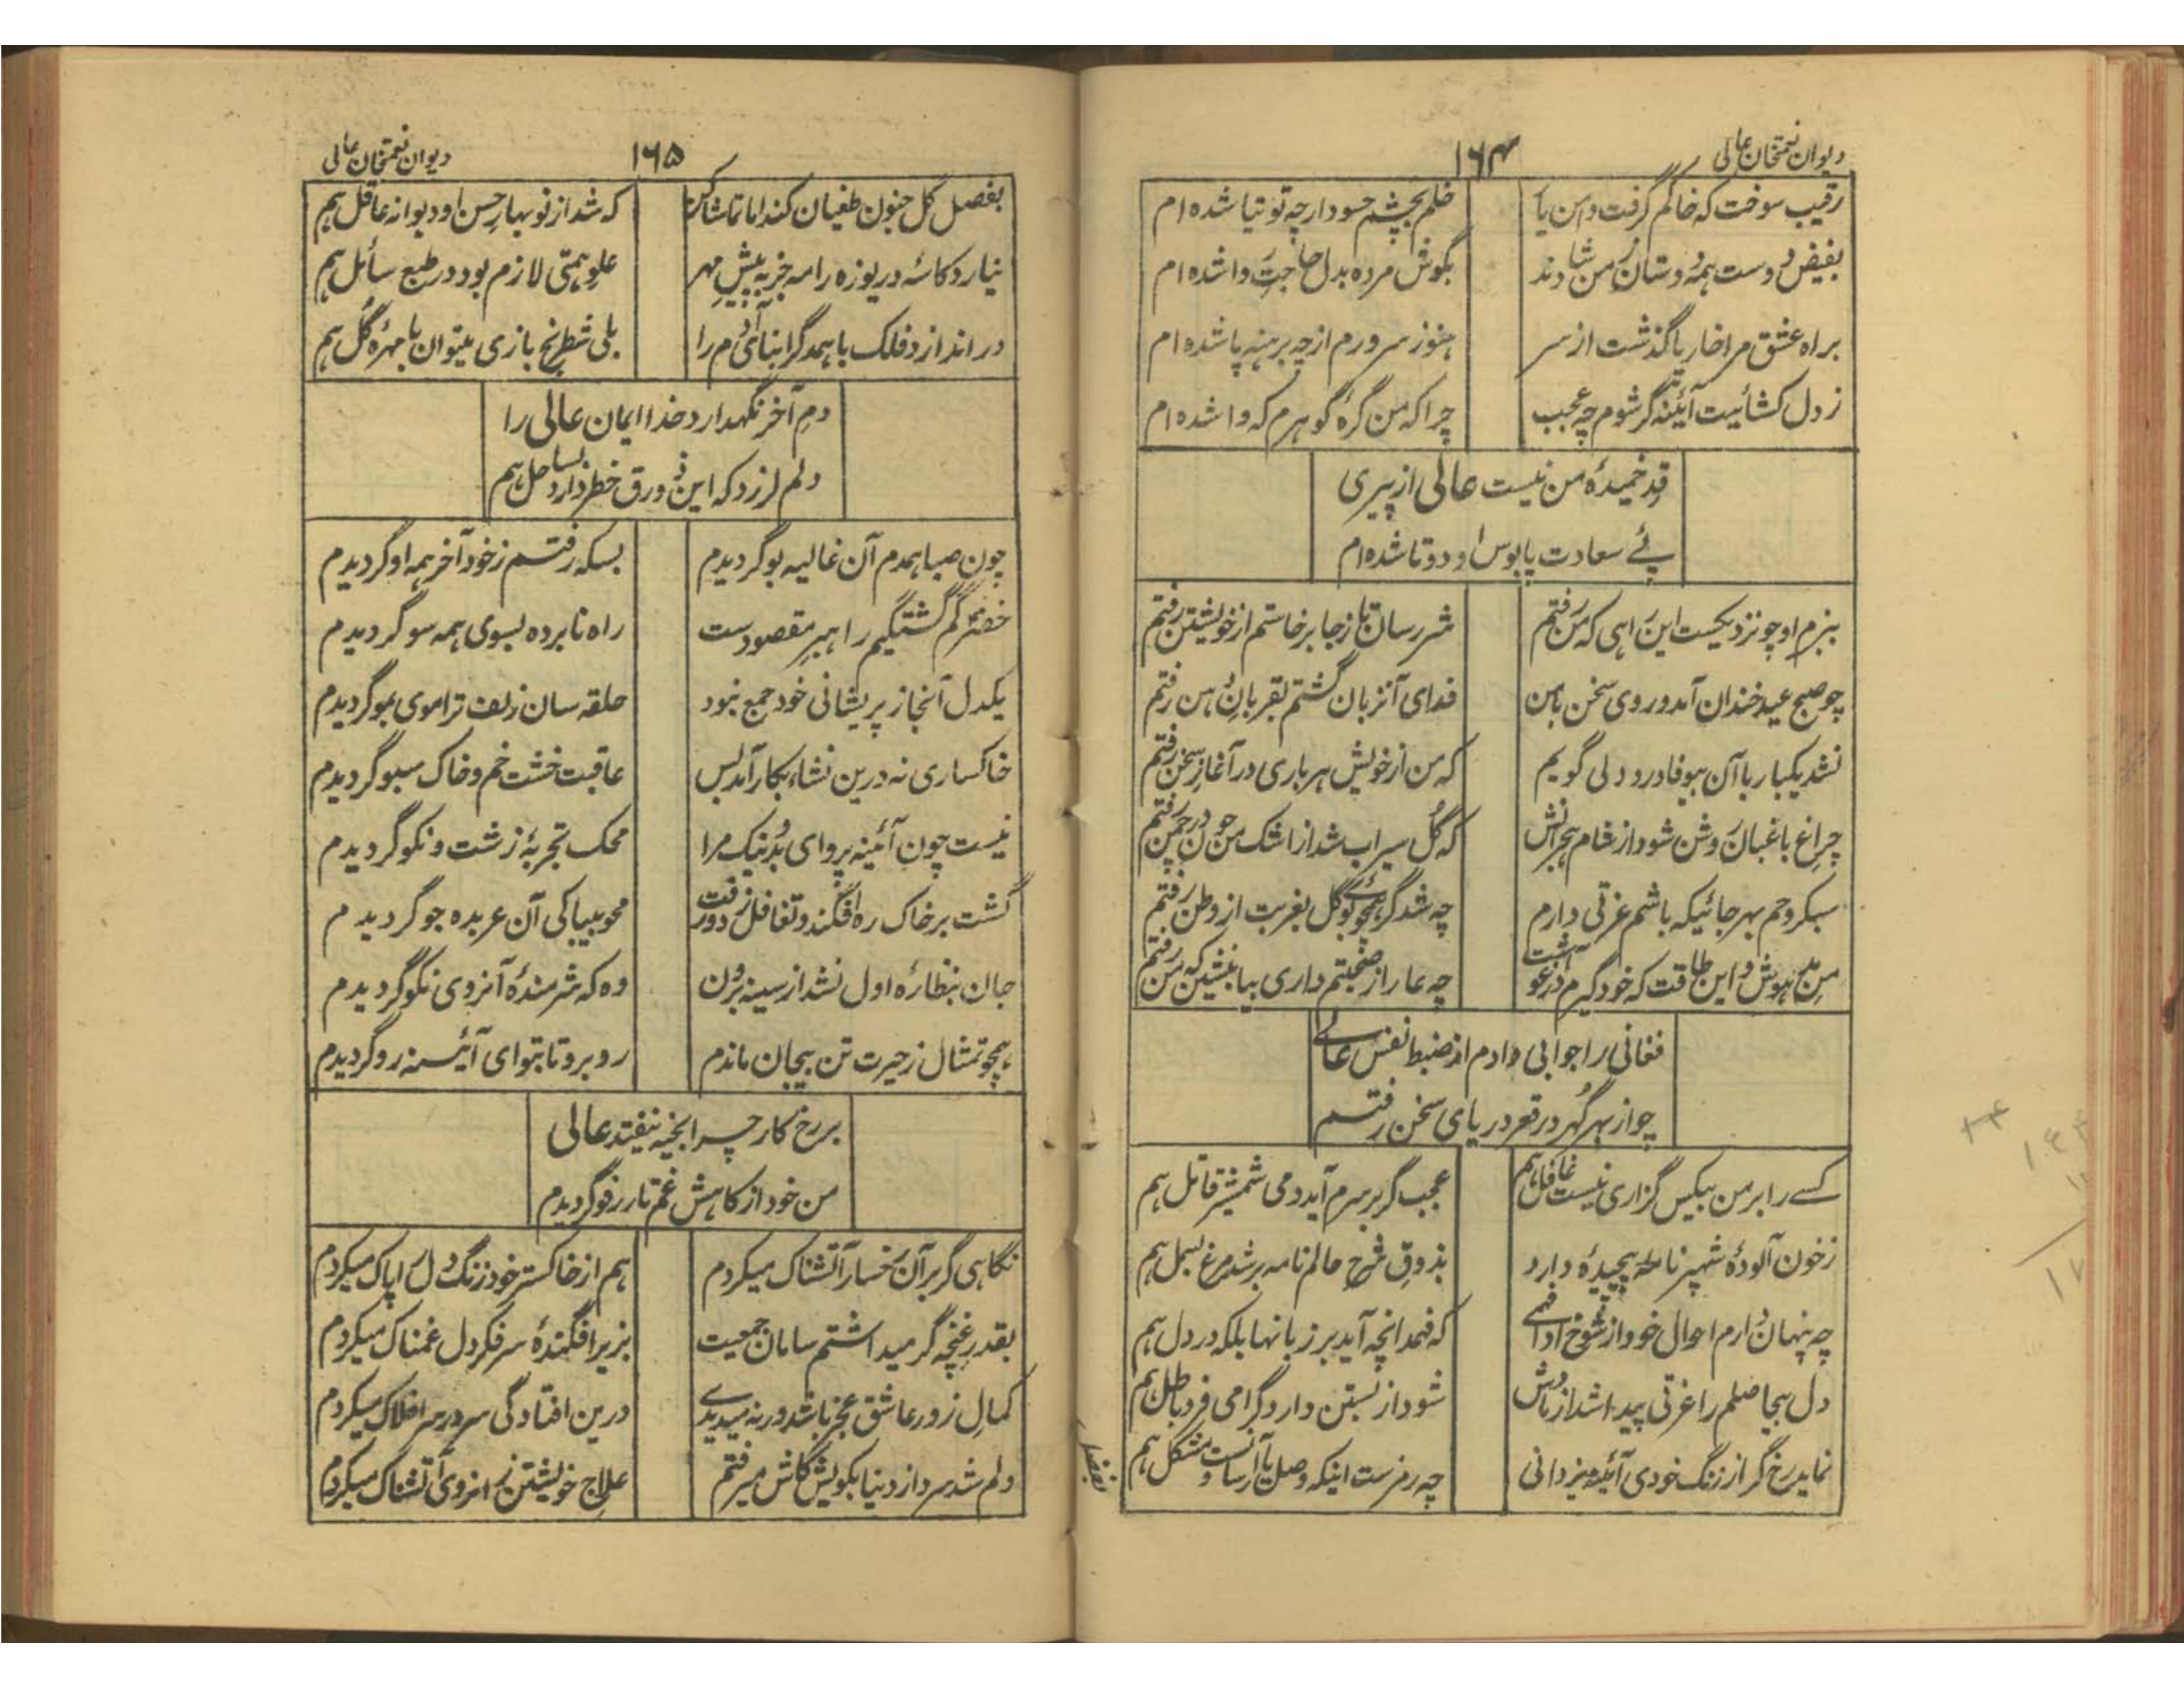 دیوان نعمتخان عالی
۱۶۴
رقیب سوخت که خاکم گرفت دامن یار
خلم بچشم حسود ارچه توتیا شده ام
بفیض دوست همه دوستان ز من شادند
بگوش مرده بدل حاجت روا شده ام
براه عشق مرا خار پا گذشت از سر
هنوز سر و رم از چه برهنه پا شده ام
ز دل کشائیت آئینه گر شوم چه عجب
چرا که من گره گوهرم که وا شده ام
قد خمیدهٔ من نیست عالی از پیری
پئے سعادت پابوس او دو تا شده ام
ببزم او چو نزدیکست این راهی که من رفتم
شرر سان تا ز جا برخاستم از خویشتن رفتم
چو صبح عید خندان آمد و روی سخن بامن
فدای آن زبان گشتم بقربان دهن رفتم
نشد یکبار با آن بیوفا درد دلی گویم
که من از خویش هر باری در آغاز سخن رفتم
چراغ باغبان روشن شود از شام هجرانش
که گل سیراب شد از اشک من چون در چمن رفتم
سبکروحم بهر جائیکه باشم عزتی دارم
چه شد گر همچو بوی گل بغربت از وطن رفتم
من بیهوش و این طاقت که خود گیرم در آغوشت
چه عار از صحبتم داری بیا بنشین که من رفتم
فغانی را جوابی دادم از ضبط نفس عالے
چو از بهر گهر در قعر دریای سخن رفتم
کسے را بر من بیکس گزاری نیست غافل هم
عجب گر بر سرم آید دمی شمشیر قاتل هم
ز خون آلوده شهپر نامهٔ پیچیده دارد
بذوق شرح حالم نامه بر شد مرغ بسمل هم
چه پنهان دارم احوال خود از شوخ ادا فهمے
که فهمد انچه آید بر زبانها بلکه در دل هم
دل بیحاصلم را عزتی پیدا شد از یادش
شود از نسبتن دارو گرامی فرد باطل هم
نماید رخ گر از زنگ خودی آئینه بزدانی
چه رمزست اینکه وصل یار آسانست و مشکل هم
بفصل
دیوان نعمتخان عالی
۱۶۵
بفصل گل جنون طغیان کند اما تماشا کن
که شد از نوبهار حسن او دیوانه عاقل هم
نیارد کاسهٔ دریوزه را مه جز به پیش مهر
علو همتی لازم بود در طبع سائل هم
در اندازد فلک با همدگر ابنای آدم را
بلی شطرنج بازی میتوان با مهرهٔ گل هم
دم آخر نگهدارد خدا ایمان عالی را
دلم لرزد که این زورق خطر دارد بساحل هم
چون صبا همدم آن غالیه بو گردیدم
بسکه رفتم ز خود آخر همه او گردیدم
خضر گم گشتگیم راهبر مقصودست
راه نابرده بسوی همه سو گردیدم
یکدل آنجا ز پریشانی خود جمع نبود
حلقه سان زلف ترا موی بمو گردیدم
خاکساری نه درین نشاء بکار آمد بس
عاقبت خشت خم و خاک سبو گردیدم
نیست چون آئینه پروای بد و نیک مرا
محک تجربهٔ زشت و نکو گردیدم
گشت بر خاک ره افگند و تغافل زد و رفت
محو بیباکی آن عربده جو گردیدم
جان بنظارهٔ اول نشد از سینه برون
وه که شرمندهٔ آنروی نکو گردیدم
همچو تمثال ز حیرت تن بیجان ماندم
روبرو تا بتو ای آئینه رو گردیدم
بر رخ کار چرا بخیه نیفتد عالی
من خود از کاهش غم تار رفو گردیدم
نگاهی گر بر آن رخسار آتشناک میکردم
هم از خاکستر خود زنگ دل را پاک میکردم
بقدر غنچه گر میداشتم سامان جمعیت
بزیر افگندهٔ سر فکر دل غمناک میکردم
کمال زور عاشق عجز باشد ورنه میدیدے
درین افتادگی سر در سر افلاک میکردم
دلم شد سرد از دنیا بکویش کاش میرفتم
علاج خویشتن زانروی آتشناک میکردم